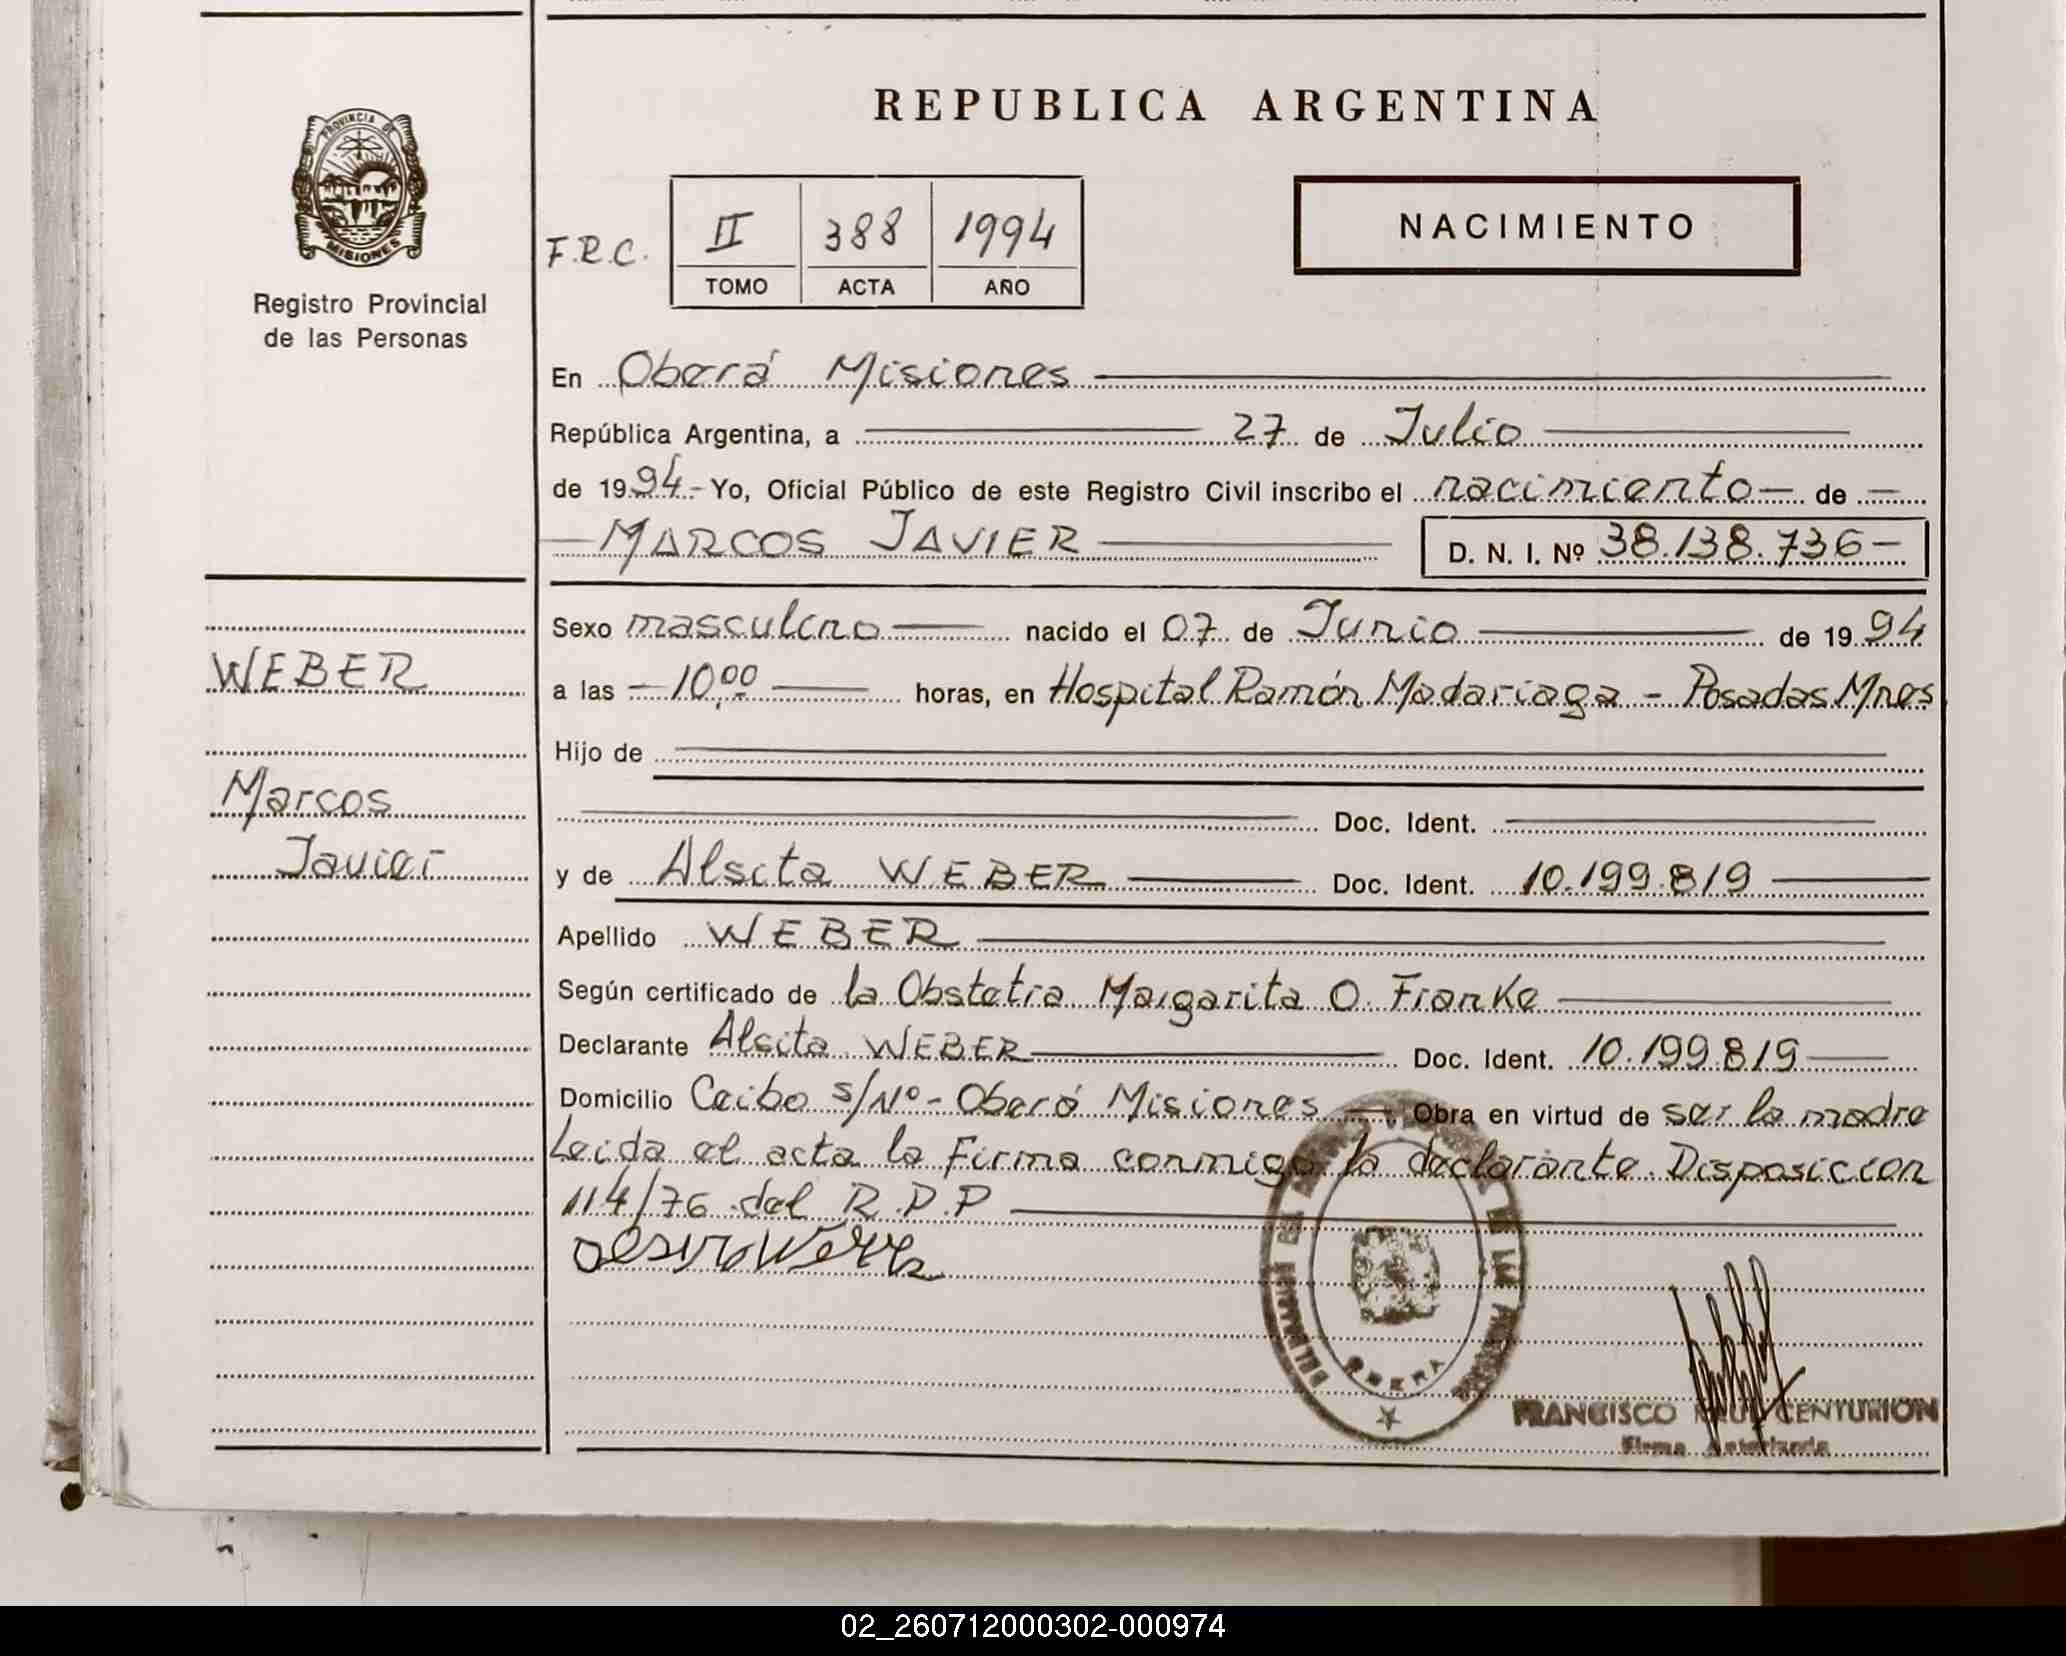 REPUBLICA ARGENTINA
PROVINCIA DE
MISIONES
Registro Provincial
de las Personas
F.R.C.
II 388 1994
TOMO ACTA AÑO
NACIMIENTO
En Oberá Misiones
República Argentina, a 27 de Julio
de 1994.- Yo, Oficial Público de este Registro Civil inscribo el nacimiento - de -
MARCOS JAVIER D. N. I. Nº 38.138.736-
Sexo masculino nacido el 07 de Junio de 1994
WEBER
a las - 10,00 horas, en Hospital Ramón Madariaga - Posadas Mnes
Hijo de
Marcos
Doc. Ident.
Javier
y de Alsita WEBER Doc. Ident. 10.199.819
Apellido WEBER
Según certificado de la Obstetra Margarita O. Franke
Declarante Alsita WEBER Doc. Ident. 10.199.819
Domicilio Ceibo S/Nº - Oberá Misiones Obra en virtud de ser la madre
Leida el acta la Firma conmigo la declarante. Disposicion
114/76 del R.P.P
OBERA
FRANCISCO CENTURION
Firma Autorizada
02_260712000302-000974